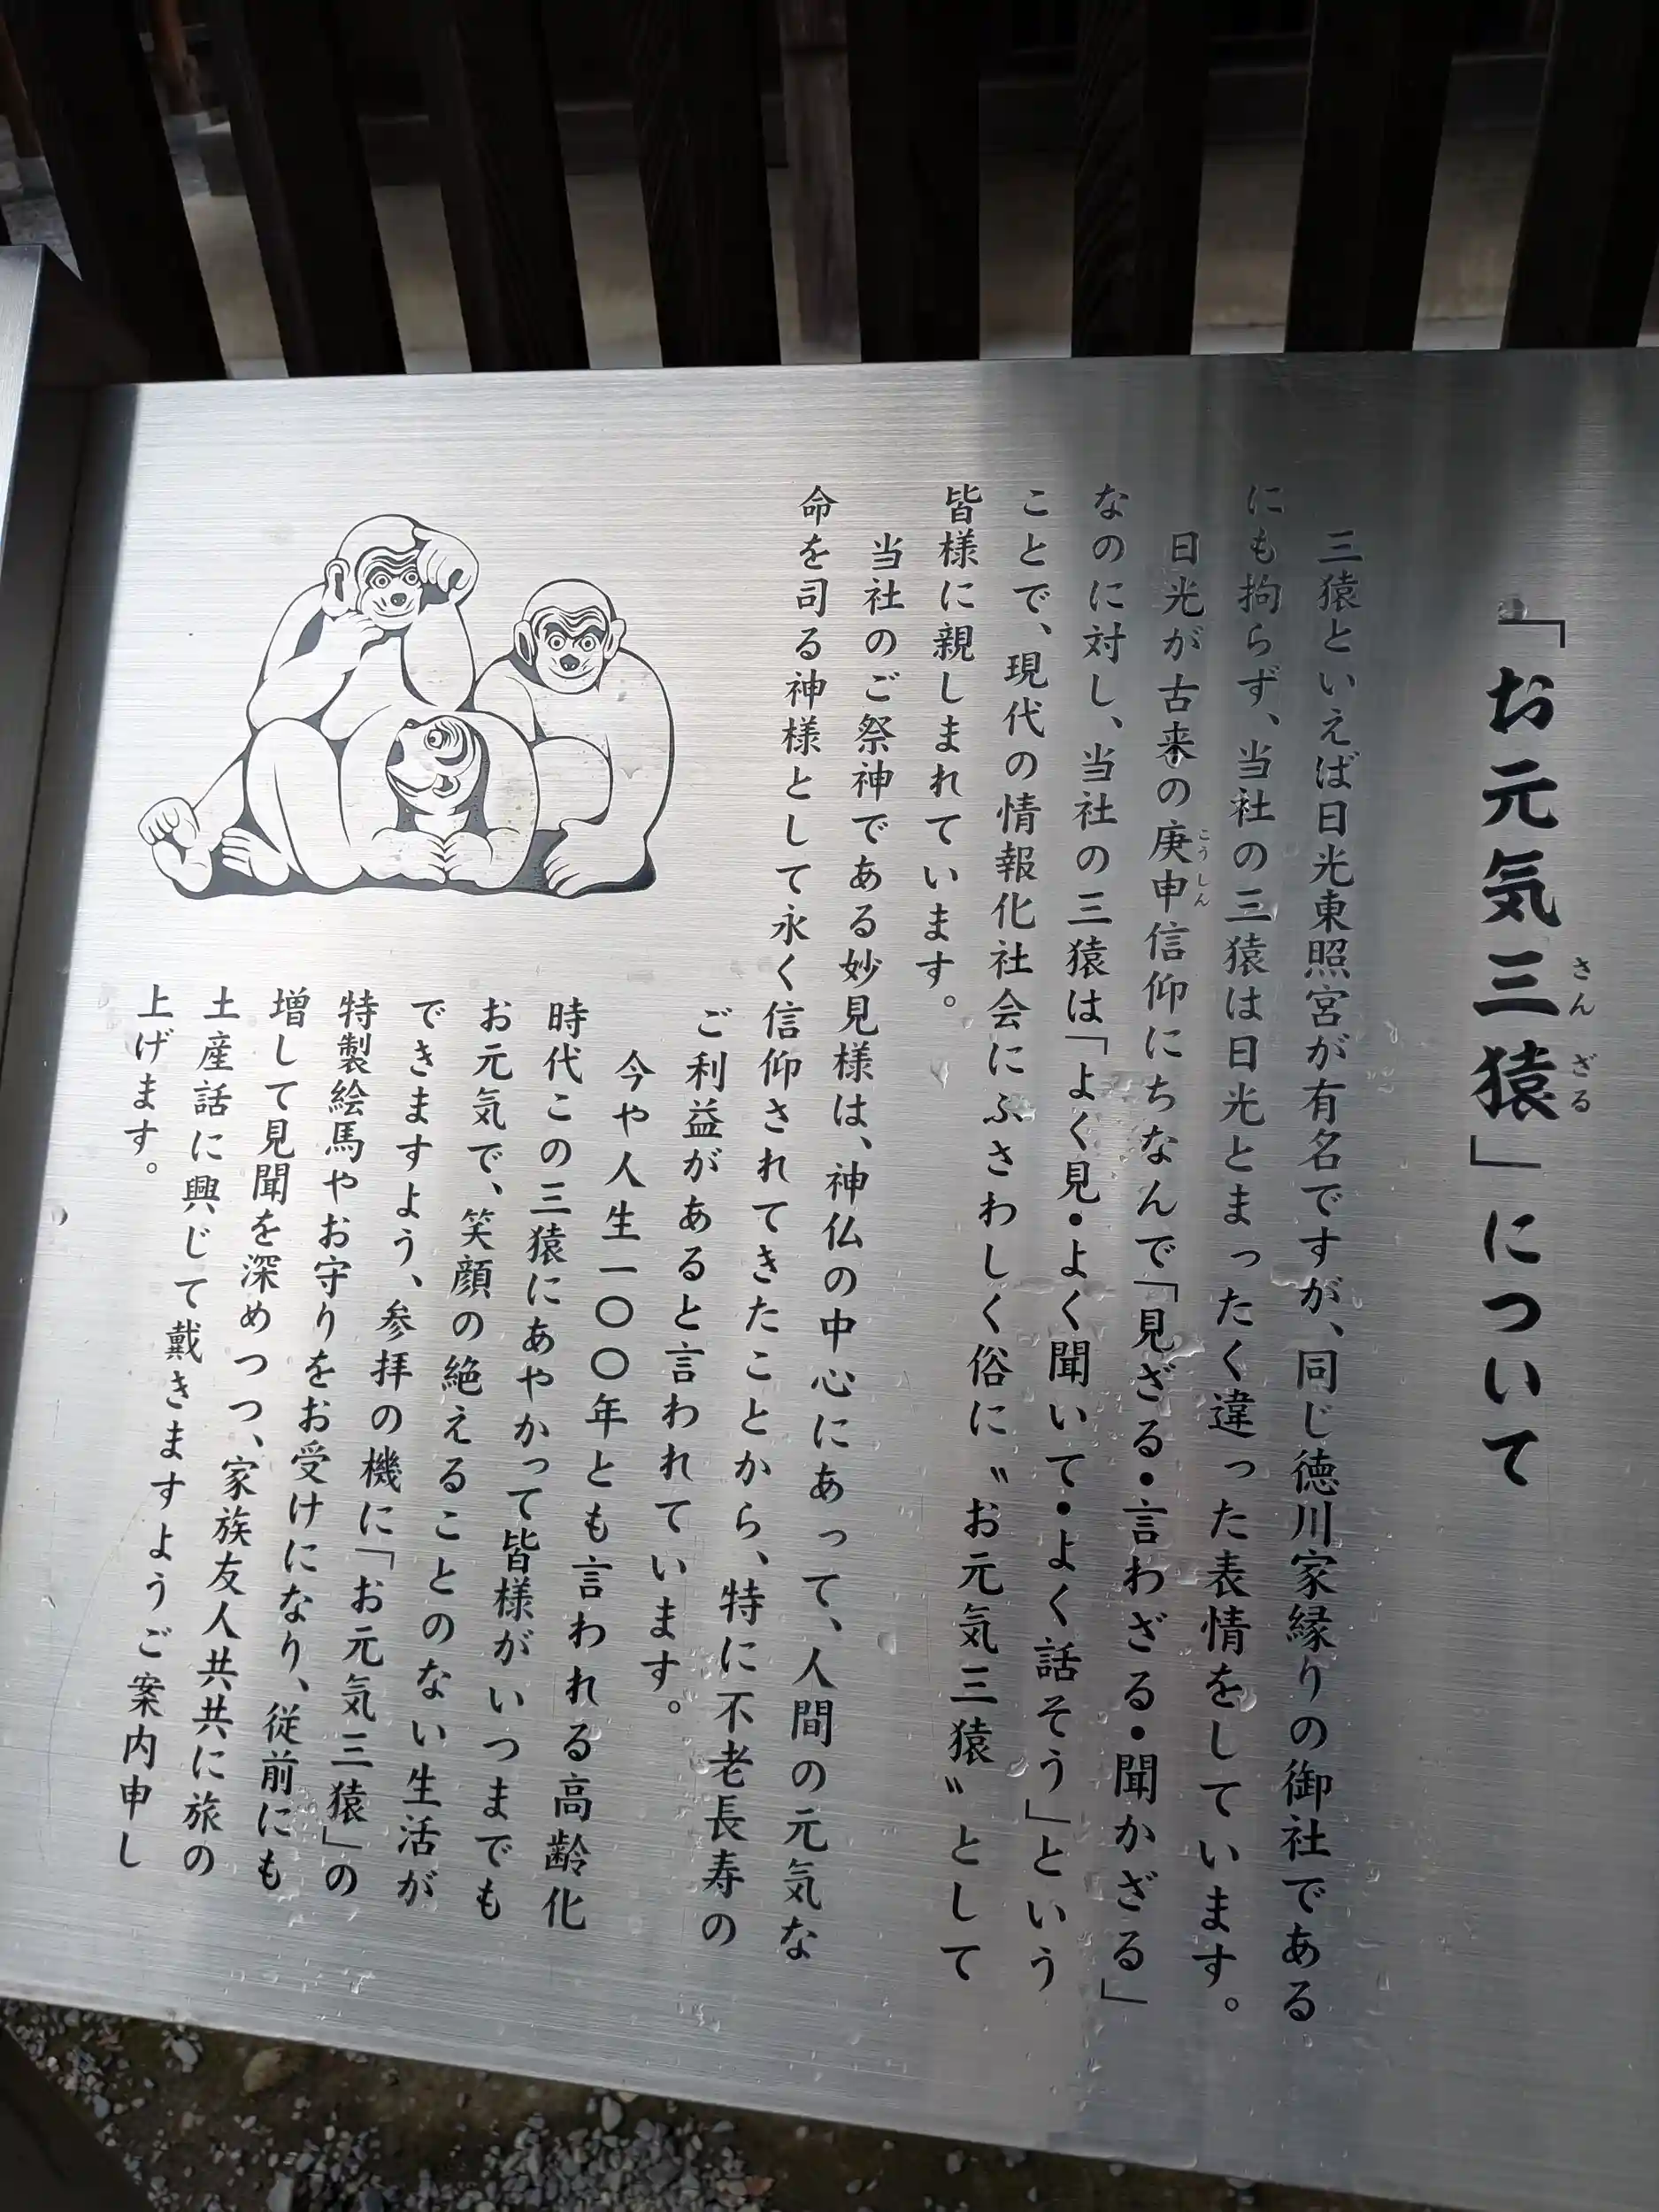 「お元気三猿」について
さんざる
三猿といえば日光東照宮が有名ですが、同じ徳川家縁りの御社である
にも拘らず、当社の三猿は日光とまったく違った表情をしています。
日光が古来の庚申信仰にちなんで「見ざる・言わざる・聞かざる」
こうしん
なのに対し、当社の三猿は「よく見・よく聞いて・よく話そう」という
ことで、現代の情報化社会にふさわしく俗に〝お元気三猿〟として
皆様に親しまれています。
当社のご祭神である妙見様は、神仏の中心にあって、人間の元気な
命を司る神様として永く信仰されてきたことから、特に不老長寿の
ご利益があると言われています。
今や人生一〇〇年とも言われる高齢化
時代この三猿にあやかって皆様がいつまでも
お元気で、笑顔の絶えることのない生活が
できますよう、参拝の機に「お元気三猿」の
特製絵馬やお守りをお受けになり、従前にも
増して見聞を深めつつ、家族友人共共に旅の
土産話に興じて戴きますようご案内申し
上げます。